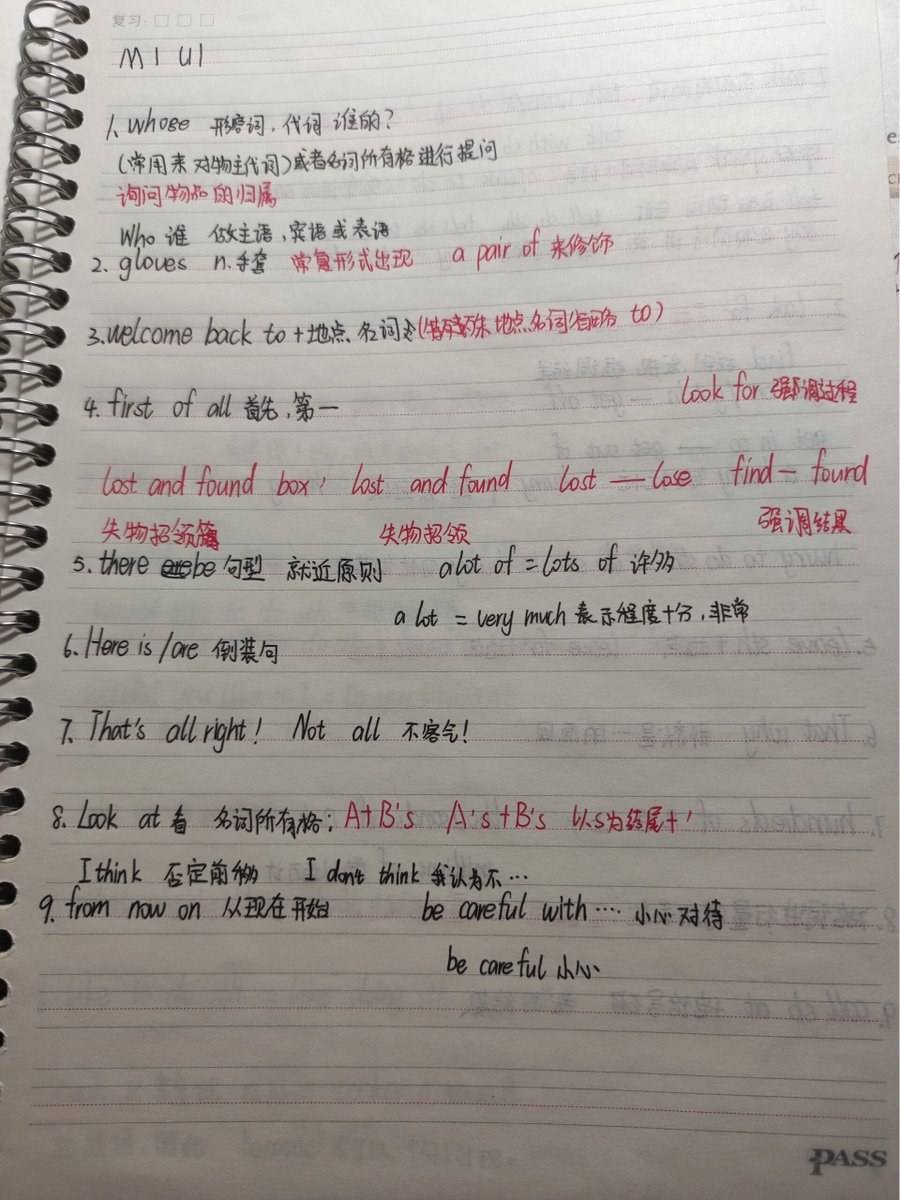 复习:
M1 U1
1. whose 形容词, 代词 谁的?
(常用来对物主代词)或者名词所有格进行提问
询问物品的归属
Who 谁 做主语, 宾语或表语
2. gloves n. 手套 常复形式出现 a pair of 来修饰
3. welcome back to + 地点 名词 地点名词 to)
4. first of all 首先, 第一
Look for 强调过程
lost and found box' lost and found lost — lose find — found
失物招领箱 失物招领 强调结果
5. there be 句型 就近原则 a lot of = lots of 许多
a lot = very much 表示程度十分, 非常
6. Here is / are 倒装句
7. That's all right! Not all 不客气!
8. Look at 看 名词所有格: A+B's A's+B's 以s为结尾+'
I think 否定前移 I don't think 我认为不…
9. from now on 从现在开始 be careful with …. 小心对待
be careful 小心
PASS